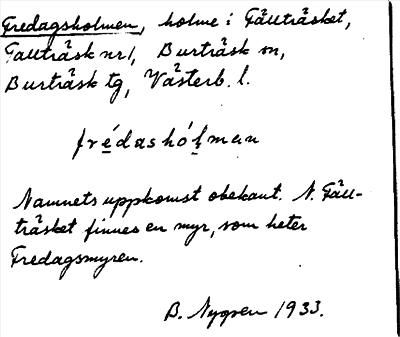 Fredagsholmen, holme i Fällträsket,
Fällträsk nr 1, Burträsk sn,
Burträsk tg, Västerb. l.
frédashólman
Namnets uppkomst obekant. N. Fäll-
träsket finnes en myr, som heter
Fredagsmyren.
B. Nygren 1933.